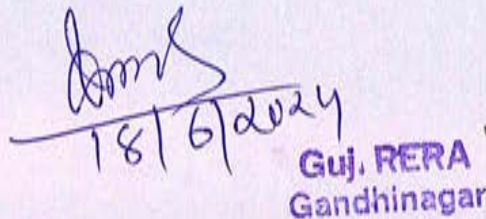 18/6/2024
Guj. RERA
Gandhinagar